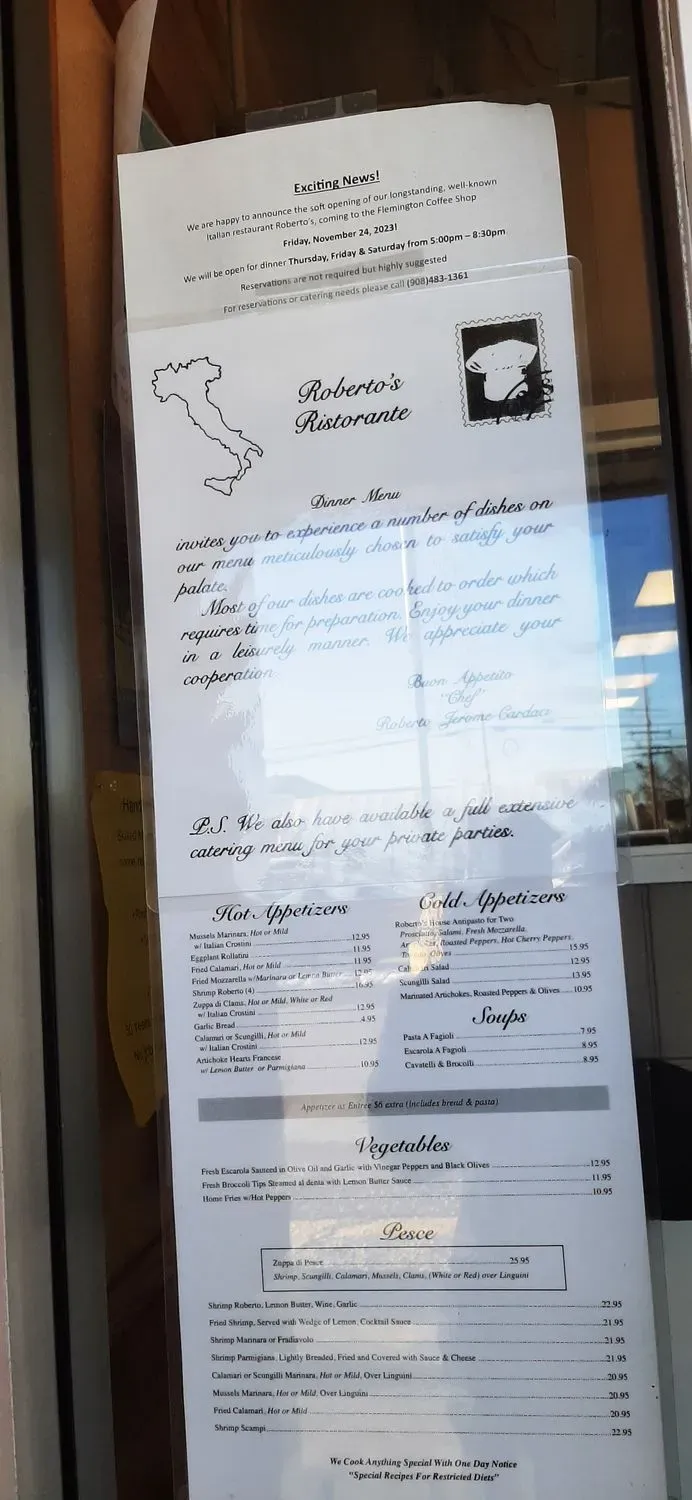 Exciting News!
We are happy to announce the soft opening of our longstanding, well-known
Italian restaurant Roberto's, coming to the Flemington Coffee Shop
Friday, November 24, 2023!
We will be open for dinner Thursday, Friday & Saturday from 5:00pm – 8:30pm
Reservations are not required but highly suggested
For reservations or catering needs please call (908)483-1361
Roberto's
Ristorante
Dinner Menu
invites you to experience a number of dishes on
our menu meticulously chosen to satisfy your
palate.
Most of our dishes are cooked to order which
requires time for preparation. Enjoy your dinner
in a leisurely manner. We appreciate your
cooperation
Buon Appetito
"Chef"
Roberto Jerome Cardaci
P.S. We also have available a full extensive
catering menu for your private parties.
Hot Appetizers
Mussels Marinara, Hot or Mild
w/ Italian Crostini 12.95
Eggplant Rollatini 11.95
Fried Calamari, Hot or Mild 11.95
Fried Mozzarella w/Marinara or Lemon Butter 12.95
Shrimp Roberto (4) 16.95
Zuppa di Clams, Hot or Mild, White or Red
w/ Italian Crostini 12.95
Garlic Bread 4.95
Calamari or Scungilli, Hot or Mild
w/ Italian Crostini 12.95
Artichoke Hearts Francese
w/ Lemon Butter or Parmigiana 10.95
Cold Appetizers
Roberto's House Antipasto for Two
Prosciutto, Salami, Fresh Mozzarella,
Roasted Peppers, Hot Cherry Peppers,
Olives 15.95
Salad 12.95
Scungilli Salad 13.95
Marinated Artichokes, Roasted Peppers & Olives 10.95
Soups
Pasta A Fagioli 7.95
Escarola A Fagioli 8.95
Cavatelli & Brocolli 8.95
Appetizer as Entree $6 extra (Includes bread & pasta)
Vegetables
Fresh Escarola Sauteed in Olive Oil and Garlic with Vinegar Peppers and Black Olives 12.95
Fresh Broccoli Tips Steamed al denta with Lemon Butter Sauce 11.95
Home Fries w/Hot Peppers 10.95
Pesce
Zuppa di Pesce 25.95
Shrimp, Scungilli, Calamari, Mussels, Clams, (White or Red) over Linguini
Shrimp Roberto, Lemon Butter, Wine, Garlic 22.95
Fried Shrimp, Served with Wedge of Lemon, Cocktail Sauce 21.95
Shrimp Marinara or Fradiavolo 21.95
Shrimp Parmigiana, Lightly Breaded, Fried and Covered with Sauce & Cheese 21.95
Calamari or Scungili Marinara, Hot or Mild, Over Linguini 20.95
Mussels Marinara, Hot or Mild, Over Linguini 20.95
Fried Calamari, Hot or Mild 20.95
Shrimp Scampi 22.95
We Cook Anything Special With One Day Notice
"Special Recipes For Restricted Diets"